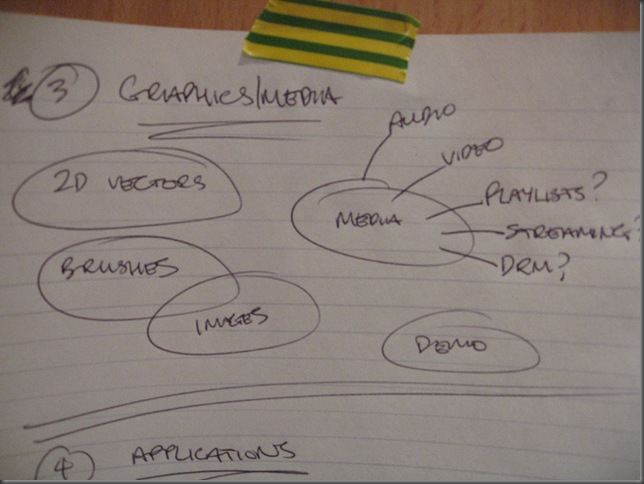 3 GRAPHICS/MEDIA
AUDIO
VIDEO
2D VECTORS
PLAYLISTS?
MEDIA
STREAMING?
BRUSHES
DRM?
IMAGES
DEMO
4 APPLICATIONS